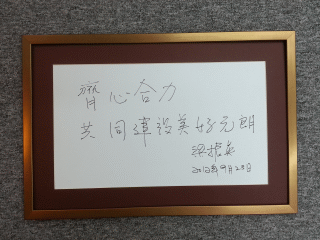 齊心合力
共同建設美好元朗
梁振英
2012年9月25日